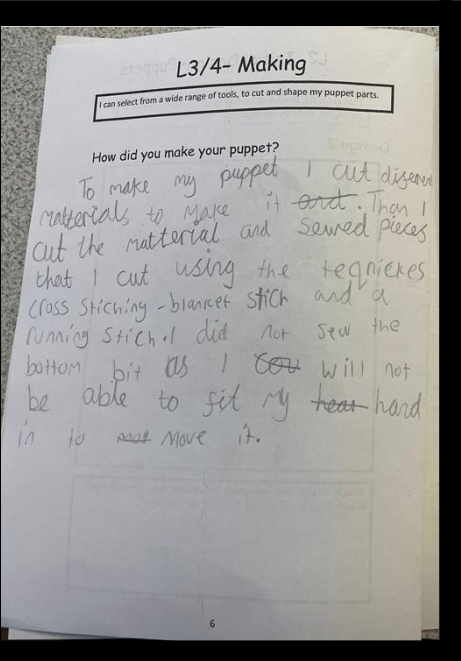 L3/4- Making
I can select from a wide range of tools, to cut and shape my puppet parts.
How did you make your puppet?
To make my puppet I cut diserent
matterials to make it and. Than I
cut the matterial and sewed pieces
that I cut using the teqniekes
cross stiching - blancet stich and a
running stich. I did not sew the
bottom bit as I cou will not
be able to fit my hear hand
in to mot move it.
6